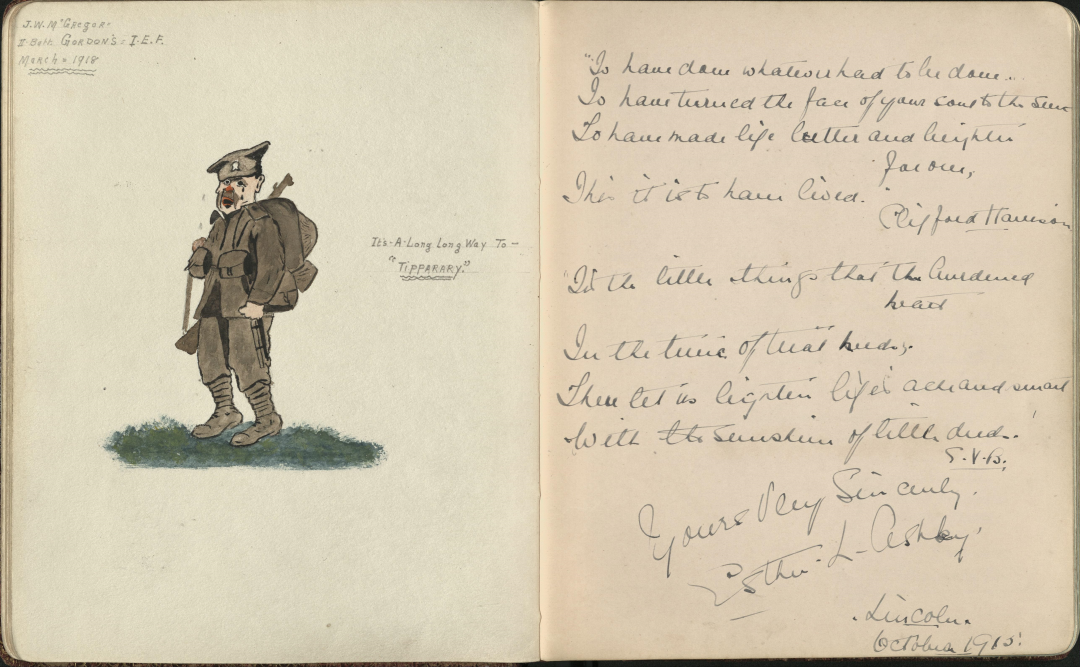 J. W. McGregor
II Batt. GORDON'S: I.E.F.
March = 1918
It's-A-Long Long Way To —
"TIPPARARY."
"To have done whatever had to be done...
To have turned the face of your soul to the sun
To have made life better and brighter
for one,
This it is to have lived.
Clifford Harrison
"'Tis the little things that the burdened
heart
In the time of trial needs,
Then let us lighten life's ache and smart
With the sunshine of little deeds.
Yours Very Sincerely.
Esther L. Ashby.
Lincoln.
October 1915.